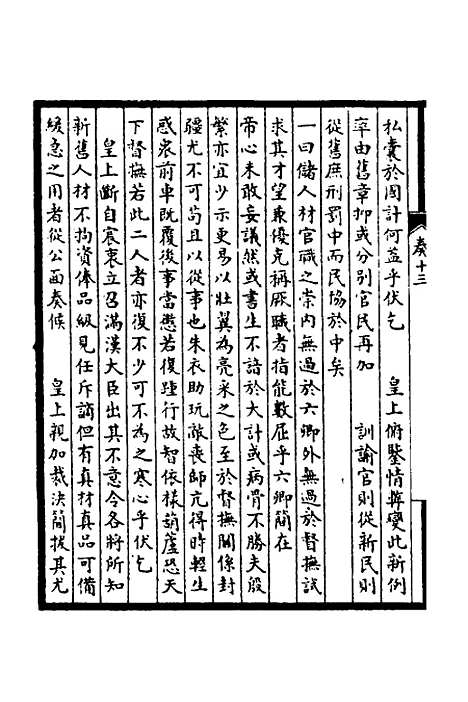 奏十三
私囊於國計何益乎伏乞　　皇上俯鑒情弊變此新例
率由舊章抑或分别官民再加　　訓諭官則從新民則
從舊庶刑罰中而民協於中矣
一曰儲人材官職之崇内無過於六卿外無過於督撫試
求其才望兼優克稱厥職者指能數屈乎六卿簡在
帝心未敢妄議然或書生不諳於大計或病骨不勝夫殷
繁亦宜少示更易以壯翼為亮采之色至於督撫關係封
疆尤不可苟且以從事也朱衣助玩敵喪師亢得時輕生
惑衆前車既覆後事當懲若復踵行故智依樣葫蘆恐天
下督撫若此二人者亦復不少可不為之寒心乎伏乞
皇上斷自宸衷立召滿漢大臣出其不意令各將所知
新舊人材不拘資俸品級見任斥謫但有真材真品可備
緩急之用者從公面奏候　　皇上親加裁決簡拔其尤